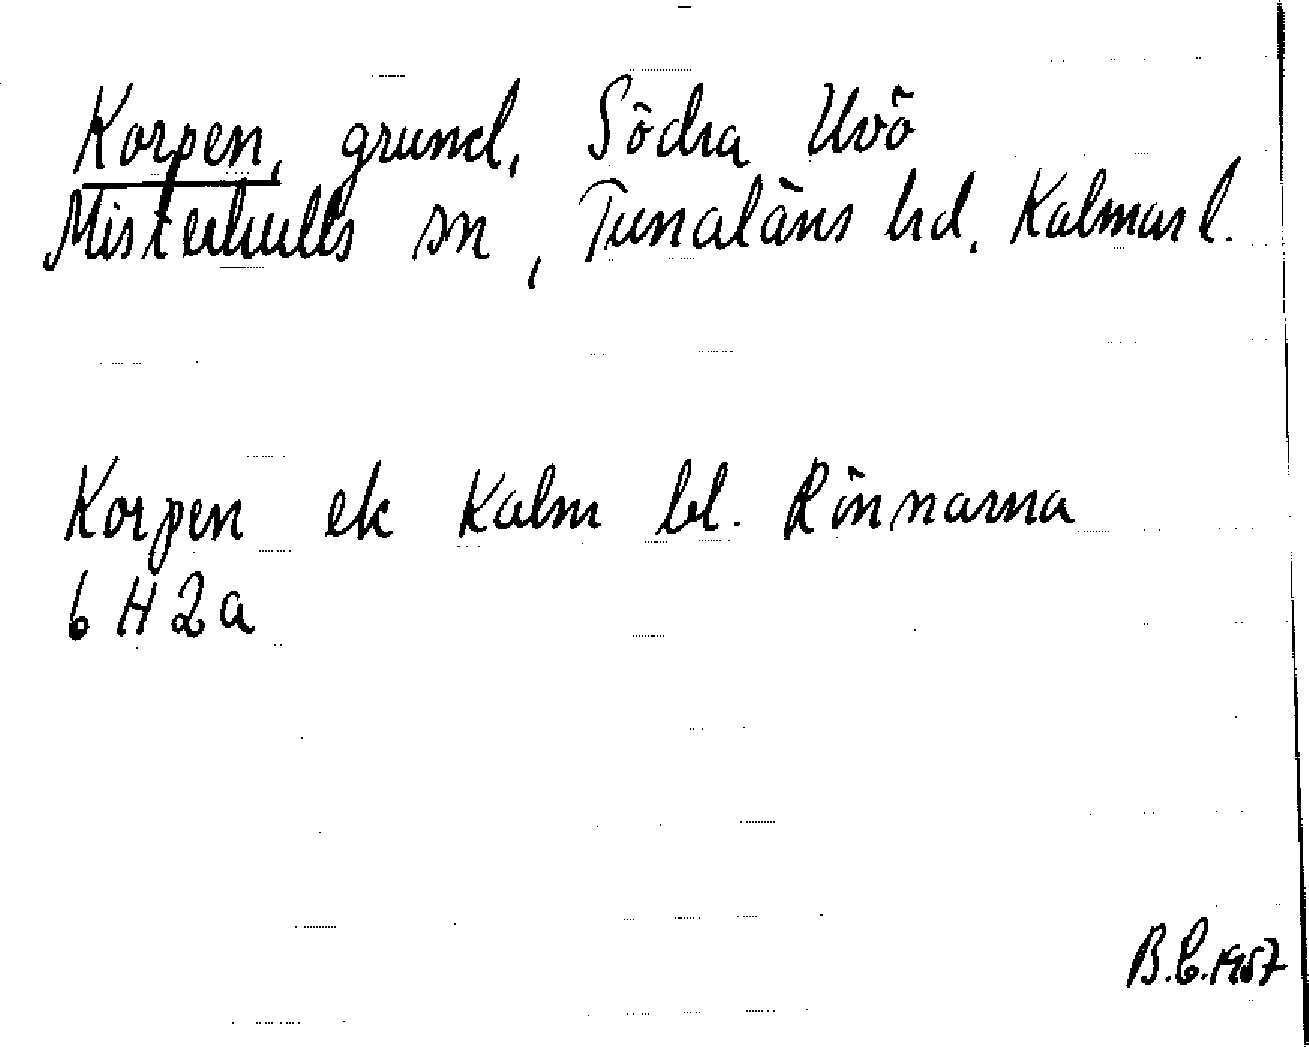 Korpen, grund, Södra Uvö
Misterhults sn, Tunaläns hd, Kalmar l.
Korpen ek Kalm bl. Rönnarna
6 H 2 a
B.E. 1957